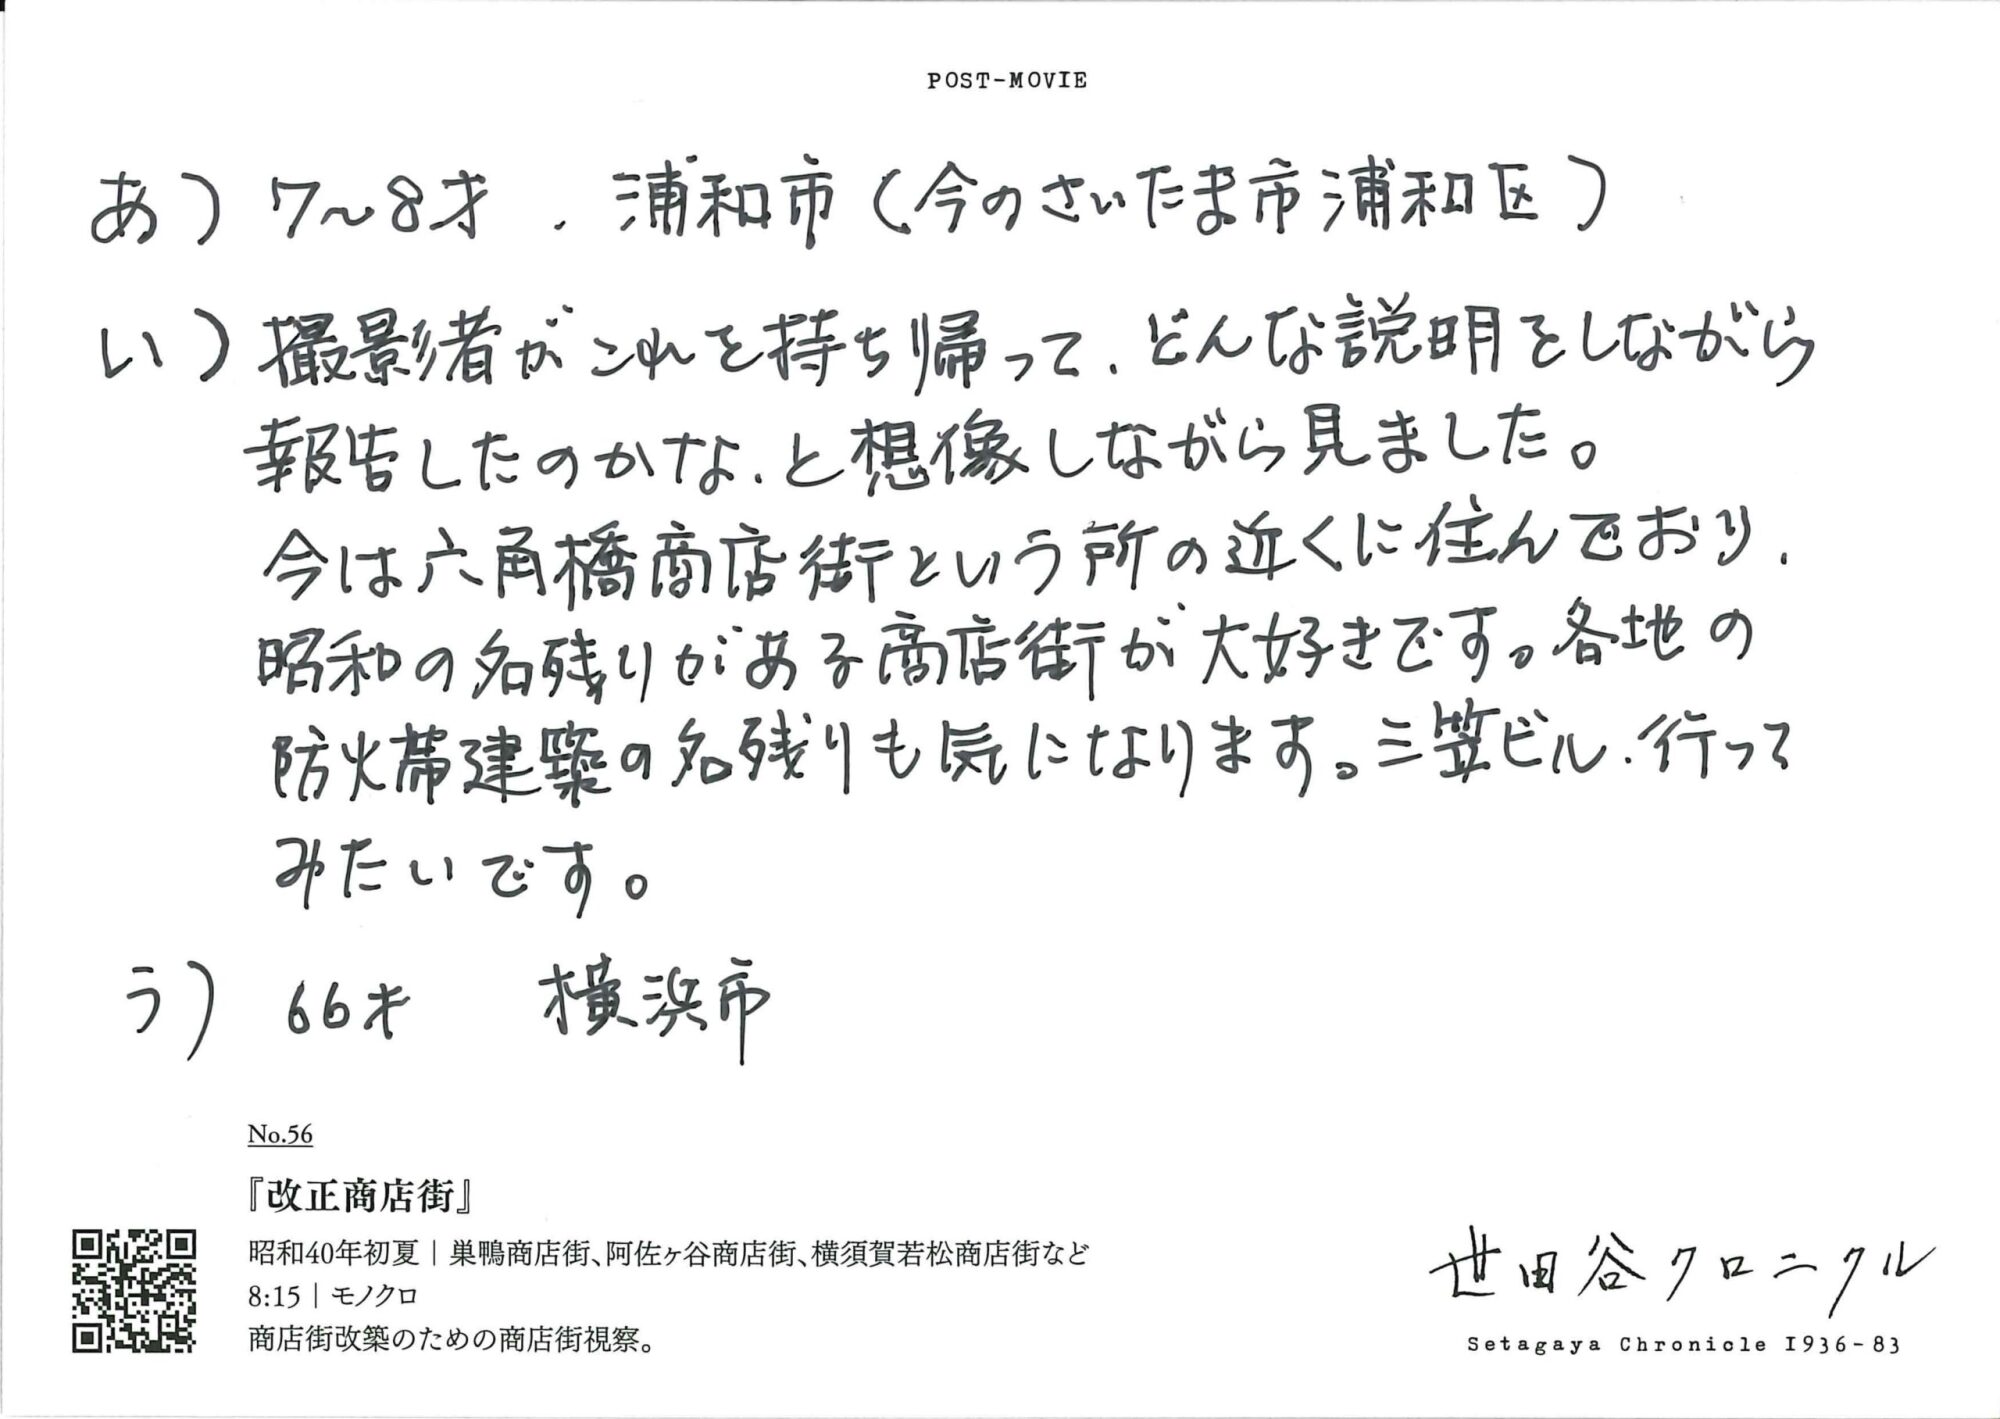 POST-MOVIE
あ) 7～8才、浦和市(今のさいたま市浦和区)
い) 撮影者がこれを持ち帰って、どんな説明をしながら
報告したのかな、と想像しながら見ました。
今は六角橋商店街という所の近くに住んでおり、
昭和の名残りがある商店街が大好きです。各地の
防火帯建築の名残りも気になります。三笠ビル、行って
みたいです。
う) 66才 横浜市
No.56
『改正商店街』
昭和40年初夏｜巣鴨商店街、阿佐ヶ谷商店街、横須賀若松商店街など
8:15｜モノクロ
商店街改築のための商店街視察。
世田谷クロニクル
Setagaya Chronicle 1936-83